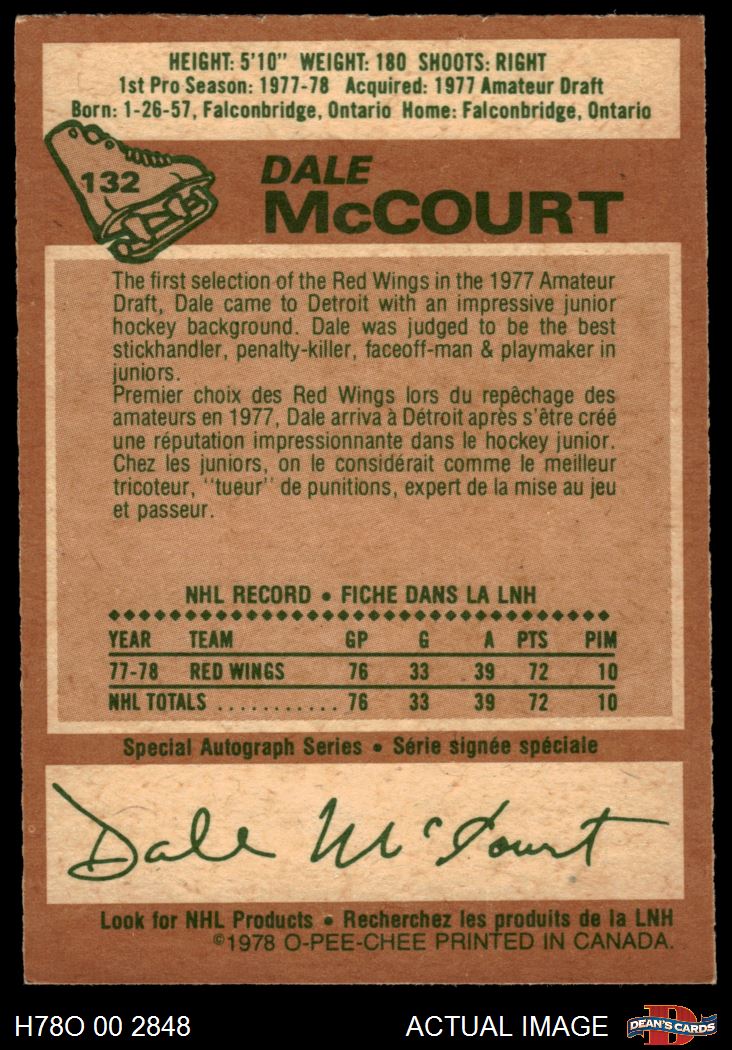 HEIGHT: 5'10" WEIGHT: 180 SHOOTS: RIGHT
1st Pro Season: 1977-78 Acquired: 1977 Amateur Draft
Born: 1-26-57, Falconbridge, Ontario Home: Falconbridge, Ontario
132
DALE
McCOURT
The first selection of the Red Wings in the 1977 Amateur
Draft, Dale came to Detroit with an impressive junior
hockey background. Dale was judged to be the best
stickhandler, penalty-killer, faceoff-man & playmaker in
juniors.
Premier choix des Red Wings lors du repêchage des
amateurs en 1977, Dale arriva à Détroit après s'être créé
une réputation impressionnante dans le hockey junior.
Chez les juniors, on le considérait comme le meilleur
tricoteur, "tueur" de punitions, expert de la mise au jeu
et passeur.
NHL RECORD • FICHE DANS LA LNH
YEAR TEAM GP G A PTS PIM
77-78 RED WINGS 76 33 39 72 10
NHL TOTALS ........... 76 33 39 72 10
Special Autograph Series • Série signée spéciale
Dale McCourt
Look for NHL Products • Recherchez les produits de la LNH
©1978 O-PEE-CHEE PRINTED IN CANADA.
H78O 00 2848 ACTUAL IMAGE D DEAN'S CARDS